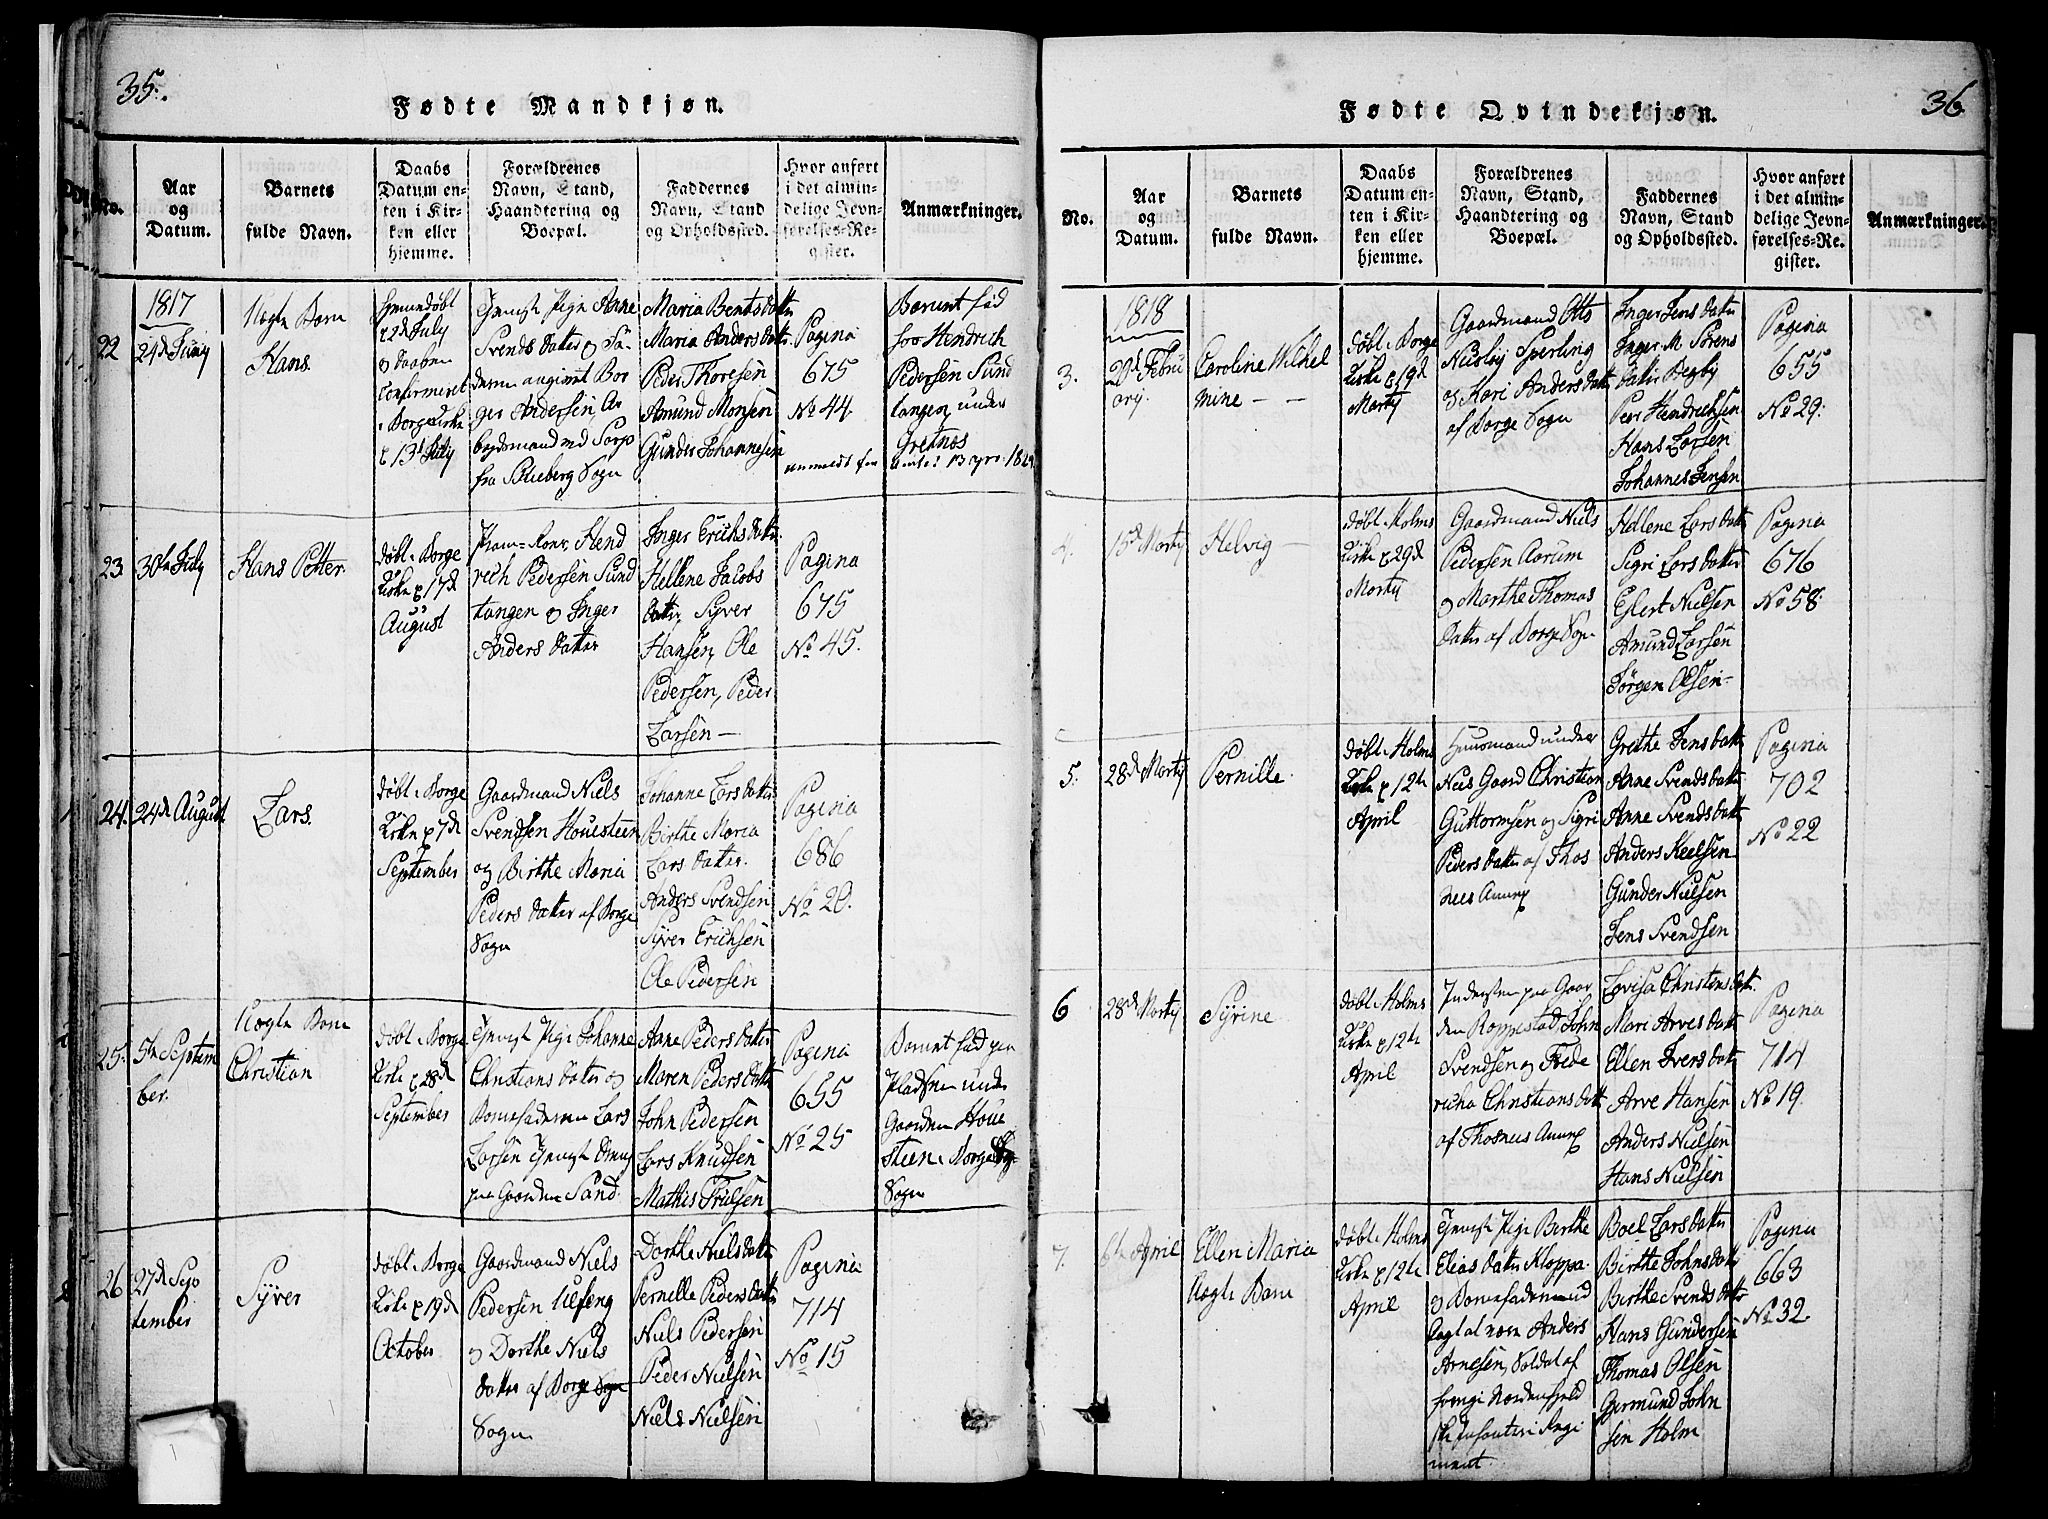 35.
Fødte Mandkjøn.
No.
Aar
og
Datum.
Barnets
fulde Navn.
Daabs
Datum en-
ten i Kir-
ken eller
hjemme.
Forældrenes
Navn, Stand,
Haandtering og
Boepæl.
Faddernes
Navn, Stand
og Opholdssted.
Hvor anført
i det almin-
delige Jevn-
førelses-Re-
gister.
Anmærkninger.
22
1817
24de Juny
Uægte Barn
Hans.
hjemmedøbt
22d July
Daaben
confirmeret
i Borge Kirke
13d July
Pige Anne
Svends datter og Fa
deren angivet Bor
ger Andersen, Ar
fra Sogn
Maria Bentsdatter
Maria Andersdatter
Peder Thoresen
Amund Monsen
Gunder Johannesen
Pagina
675
No 44.
Barnet fød
hos Hendrich
Pedersen Sund
tangen under
Gretnes
23
30te July
Hans Petter
døbt i Borge
Kirke 17d
August
Hend
rich Pedersen Sund
tangen og Inger
Anders datter
Inger Erichsdatter
Hellene Jacobs
datter, Syver
Hansen, Ole
Pedersen, Peder
Larsen —
Pagina
675
No 45.
24.
24de August
Lars.
døbt i Borge
Kirke 7d
September
Gaardmand Niels
Svendsen Houesteen
og Birthe Maria
Peders datter af Borge
Sogn
Johanne Larsdatter
Birthe Maria
Lars datter.
Anders Svendsen
Syver Erichsen
Ole Pedersen
Pagina
686
No 20.
25.
5te Septem
ber.
Uægte Barn
Christian
døbt i Borge
Kirke 28d
September
Pige Johanne
Christians datter og
Barnefaderen Lars
Larsen
paa Gaarden Sand.
Anne Pedersdatter
Maren Pedersdatter
John Pedersen
Lars Knudsen
Mathis Frielsen
Pagina
655
No 25
Barnet fød paa
Pladsen under
Gaarden Houe
steen i Borge
Sogn
26
27de Sep
tember
Syver
døbt i Borge
Kirke 19d
October
Gaardmand Niels
Pedersen Ulfeng
og Dorthe Niels
datter af Borge
Sogn
Dorthe Nielsdatter
Pernelle Pedersdatter
Niels Pedersen
Peder Nielsen
Niels Nielsen
Pagina
714
No 15
36
Fødte Qvindekjøn.
No.
Aar
og
Datum.
Barnets
fulde Navn.
Daabs
Datum en-
ten i Kir-
ken eller
hjemme.
Forældrenes
Navn, Stand,
Haandtering og
Boepæl.
Faddernes
Navn, Stand
og Opholdssted.
Hvor anført
i det almin-
delige Jevn-
førelses-Re-
gister.
Anmærkninger.
3.
1818
20d Febru
arij.
Caroline Wilhel
mine — —
døbt i Borge
Kirke 19d
Martij
Gaardmand Otto
Nilsby Sperling
og Kari Andersdatter
af Borge Sogn
Inger Jensdatter
Inger M. Sørens
datter Begby
Peer Hendrichsen
Hans Larsen
Johannes Jensen
Pagina
655
No 29.
4.
15d Martij
Helvig —
døbt i Holms
Kirke 29d
Martij
Gaardmand Niels
Pedersen Aarum
og Marthe Thomas
datter af Borge Sogn
Hellene Larsdatter
Sigri Larsdatter
Eylert Nielsen
Amund Larsen
Jørgen Olsen —
Pagina
676
No 58.
5.
28d Martij
Pernille.
døbt i Holms
Kirke 12te
April
Huusmand under
Nees Gaard Christian
Guttormsen og Sigri
Pedersdatter af Thos
nees Annex
Grethe Jensdatter
Anne Svendsdatter
Anne Svendsdatter
Anders Keelsen
Gunder Nielsen
Jens Svendsen
Pagina
702
No 22
6
28d Martij
Syrine
døbt i Holms
Kirke 12te
April
Inderster paa Gaar
den Roppestad John
Svendsen og Frede
richa Christiansdatter
af Thosnees Annex
Lovisa Christensdatter
Mari Arvesdatter
Ellen Iversdatter
Arve Hansen
Anders Nielsen
Hans Nielsen
Pagina
714
No 19.
7.
6te April
Ellen Maria
Uægte Barn
døbt i Holms
Kirke 12te
April
Pige Birthe
Elias datter Kloppa.
og Barnefaderen ud
lagt at være Anders
Arnesen, Soldat af
Nordenfield
ske Infanterie Regi
ment.
Boel Larsdatter
Birthe Johnsdatter
Birthe Svendsdatter
Hans Gundersen
Thomas Olsen
Germund John
sen Holm
Pagina
663
No 32.